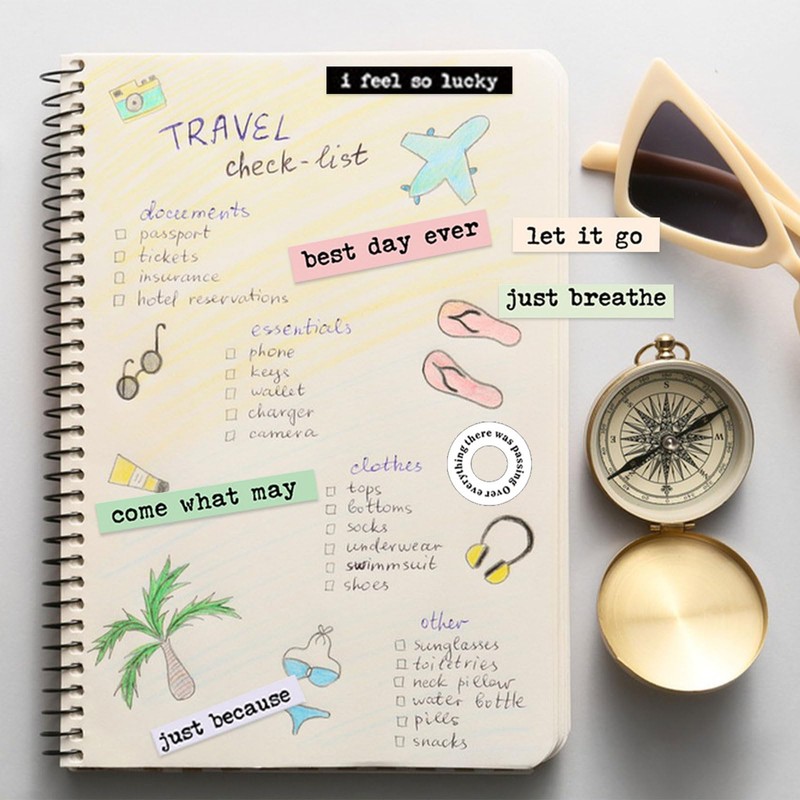 i feel so lucky
TRAVEL
check-list
documents
passport
tickets
insurance
hotel reservations
best day ever
let it go
just breathe
essentials
phone
keys
wallet
charger
camera
come what may
clothes
tops
bottoms
socks
underwear
swimmsuit
shoes
Over everything there was passing
S
E
W
other
sunglasses
toiletries
neck pillow
water bottle
pills
snacks
just because